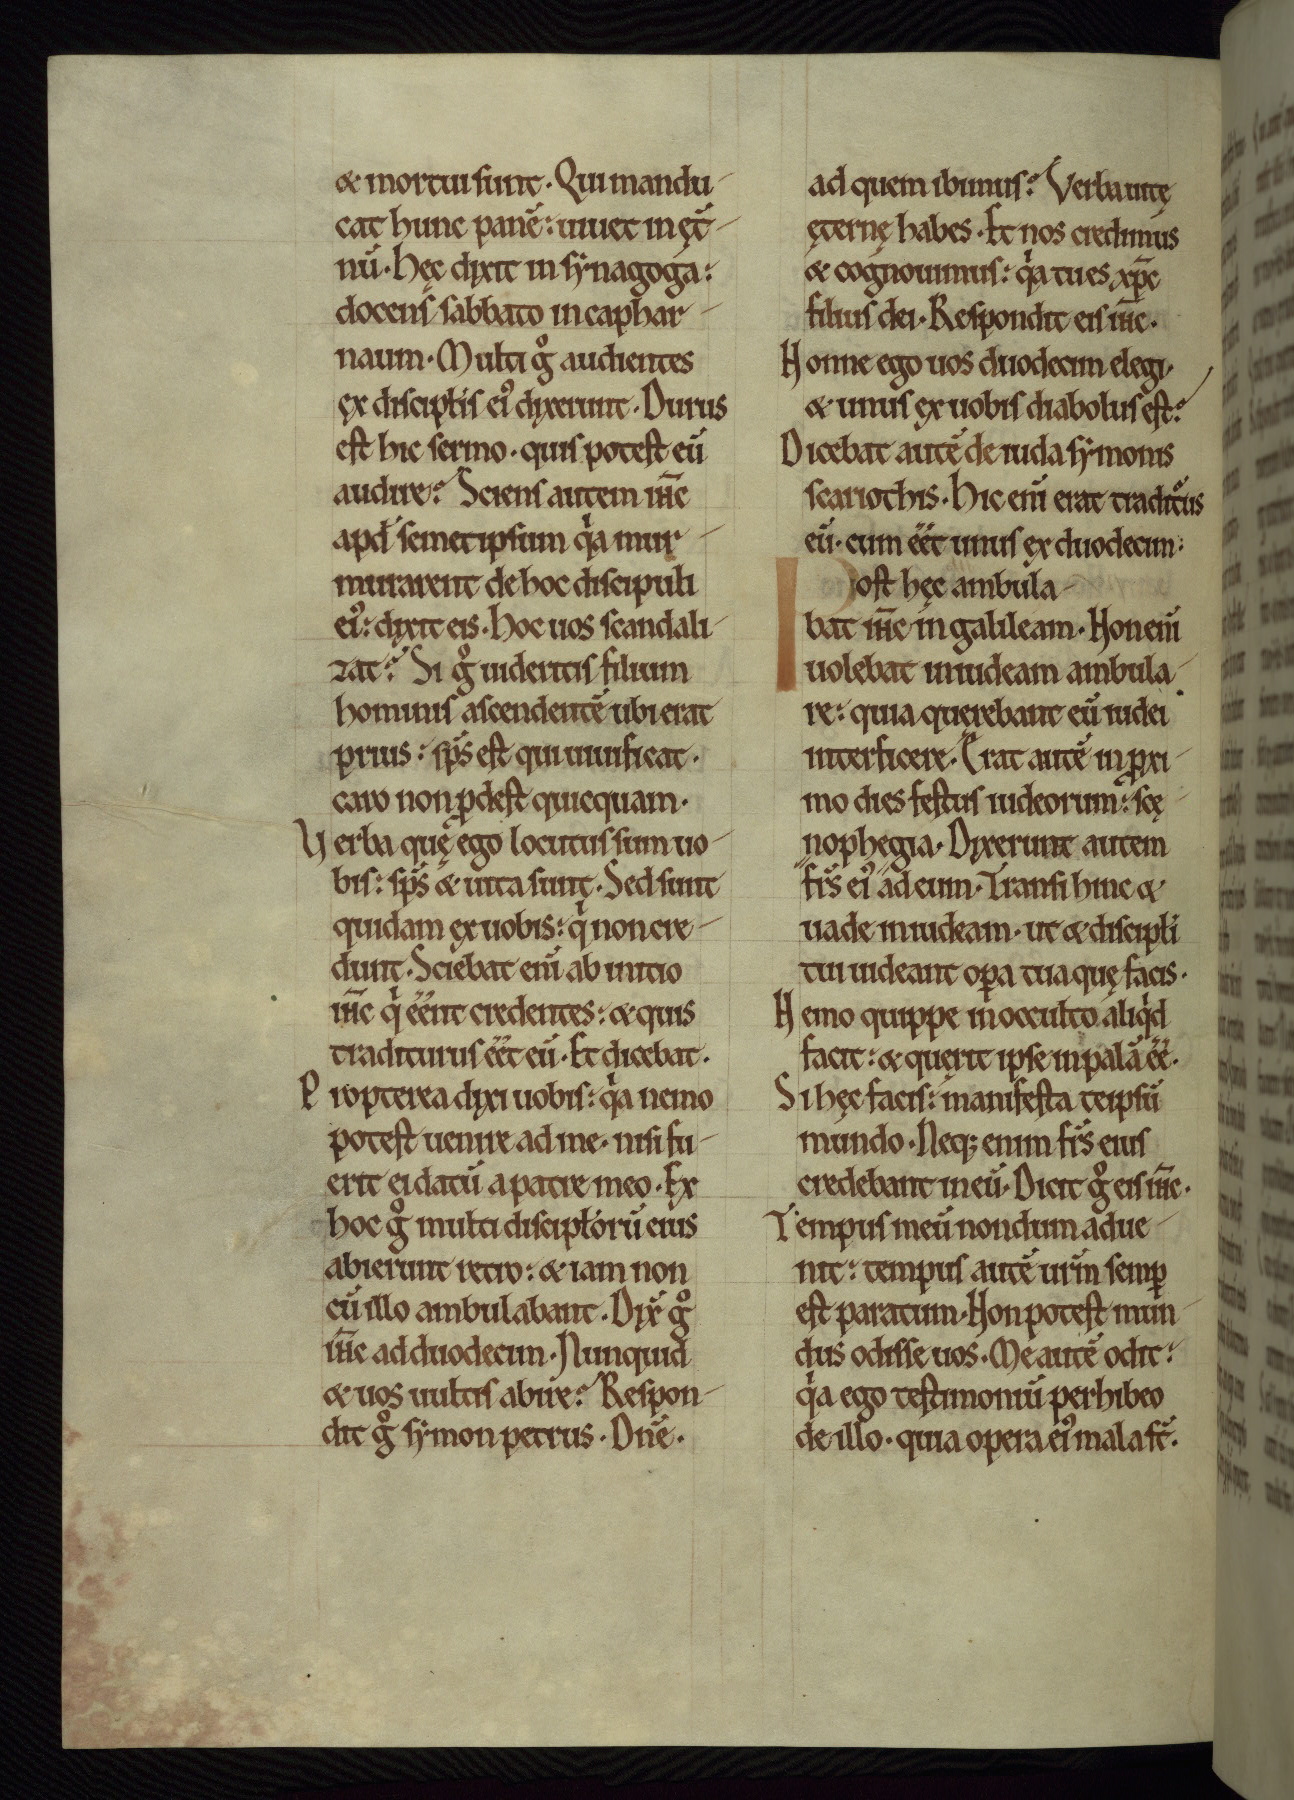 & mortui sunt. Qui mandu-
cat hunc panē: uiuet in ęt̄-
nū. Hęc dixit in synagoga:
docens sabbato in caphar-
naum. Multi gͦ audientes
ex discipłis ei᾽ dixerunt. Durus
est hic sermo. quis potest eū
audire? Sciens autem ih̄c
apđ semetipsum qͥa mur-
murarent de hoc discipuli
ei᾽: dixit eis. Hoc uos scandali-
zat? Si gͦ uideritis filium
hominis ascendentē ubi erat
prius: sp̄s est qui uiuificat.
caro non ꝓdest quicquam.
Verba quę ego locutus sum uo-
bis: sp̄s & uita sunt. Sed sunt
quidam ex uobis: qͥ non cre-
dunt. Sciebat enī ab initio
ih̄c qͥ eēnt credentes: & quis
traditurus eēt eū. Et dicebat.
Propterea dixi uobis: qͥa nemo
potest uenire ad me. nisi fu-
erit ei datū a patre meo. Ex
hoc gͦ multi discipłorū eius
abierunt retro: & iam non
cū illo ambulabant. Dix̄ gͦ
ih̄c ad duodecim. Nunquid
& uos uultis abire? Respon-
dit gͦ symon petrus. Dn̄e.
ad quem ibimus? Verba uitę
ęternę habes. Et nos credimus
& cognouimus: qͥa tu es xp̄c
filius dei. Respondit eis ih̄c.
Nonne ego uos duodecim elegi.
& unus ex uobis diabolus est?
Dicebat autē de iuda symonis
scariothis. Hic enī erat traditurus
eū. cum eēt unus ex duodecim.
Post hęc ambula-
bat ih̄c in galileam. Non enī
uolebat in iudeam ambula-
re: quia quęrebant eū iudei
interficere. Erat autē in ꝓxi-
mo dies festus iudeorum: scę-
nophegia. Dixerunt autem
fr̄s ei᾽ ad eum. Transi hinc &
uade in iudeam. ut & discipłi
tui uideant oꝑa tua quę facis.
Nemo quippe in occulto aliqͥd
facit: & querit ipse in palā eē.
Si hęc facis: manifesta teipsū
mundo. Neq; enim fr̄s eius
credebant in eū. Dicit gͦ eis ih̄c.
Tempus meū nondum adue-
nit: tempus autē ur̄m semꝑ
est paratum. Non potest mun-
dus odisse uos. Me autē odit:
qͥa ego testimoniū perhibeo
de illo. quia opera ei᾽ mala st̄.